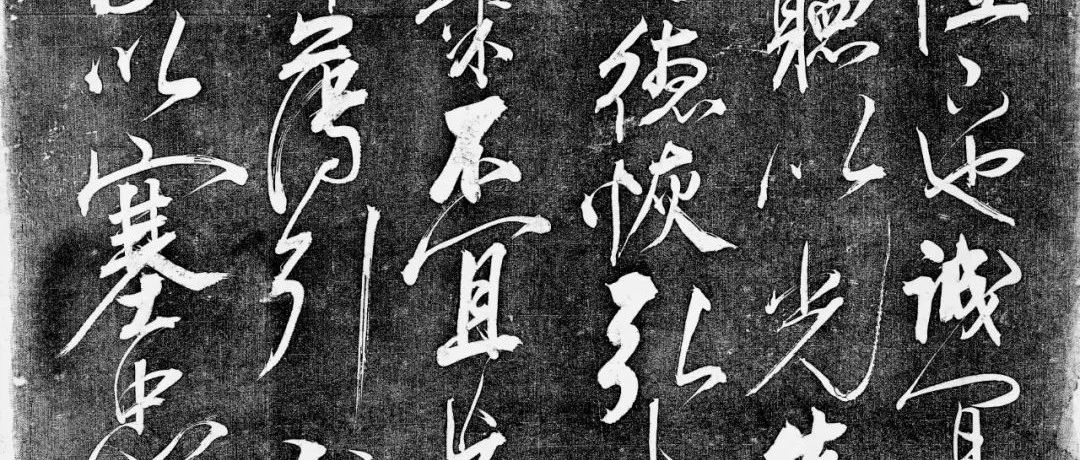 陛下也誠宜
聽以光先
德恢弘
氣不宜
薄引
以塞忠